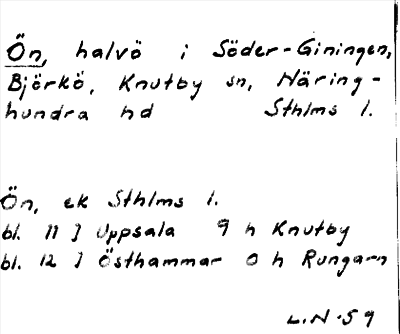 Ön, halvö i Söder-Giningen,
Björkö, Knutby sn, Näring-
hundra hd Sthlms l.
Ön, ek Sthlms l.
bl. 11 I Uppsala 9 h Knutby
bl. 12 I Östhammar 0 h Rungarn
L.N-59